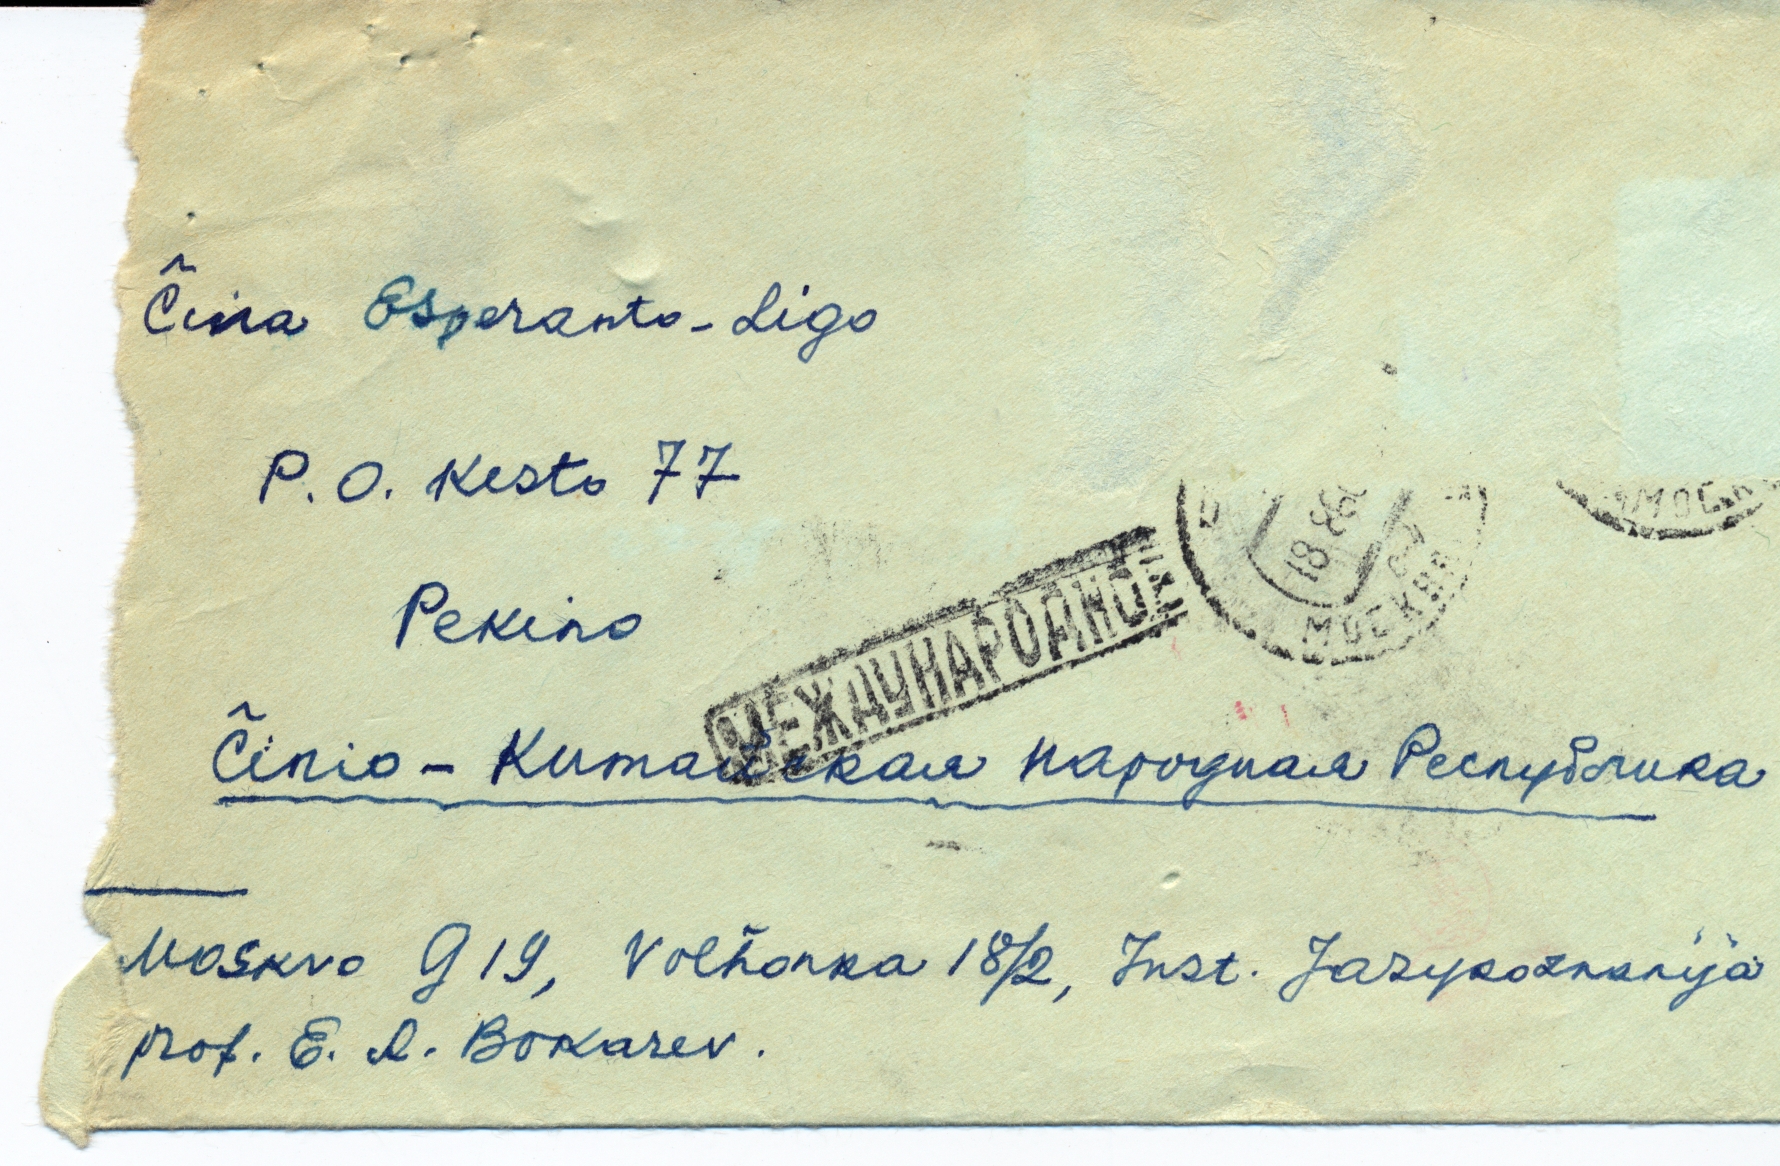 Ĉina Esperanto-Ligo
P.O. Kesto 77
Pekino
МЕЖДУНАРОДНОЕ
18
МОСКВА
МОСК
Ĉinio - Китайская Народная Республика
Moskvo G 19, Volĥonka 18/2, Inst. Jazykoznanija
prof. E. A. Bokarev.